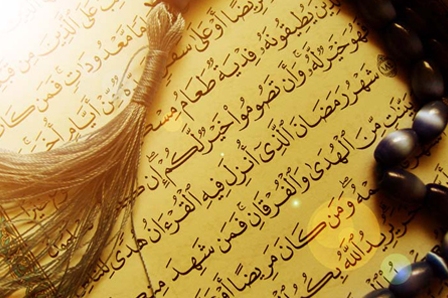 عَلَى ٱلَّذِينَ مِن
مَّعْدُودَٰتٍ فَمَن كَانَ
مَّرِيضًا أَوْ عَلَىٰ سَفَرٍ مِّنْ أَيَّامٍ أُخَرَ
يُطِيقُونَهُۥ فِدْيَةٌ طَعَامُ
فَهُوَ خَيْرٌ لَّهُۥ وَأَن تَصُومُوا۟ خَيْرٌ لَّكُمْ إِن
شَهْرُ رَمَضَانَ ٱلَّذِىٓ أُنزِلَ فِيهِ ٱلْقُرْءَانُ هُدًى لِّلنَّاسِ
مِّنَ ٱلْهُدَىٰ وَٱلْفُرْقَانِ فَمَن شَهِدَ
وَمَن كَانَ مَرِيضًا
يُرِيدُ ٱللَّهُ بِكُمُ